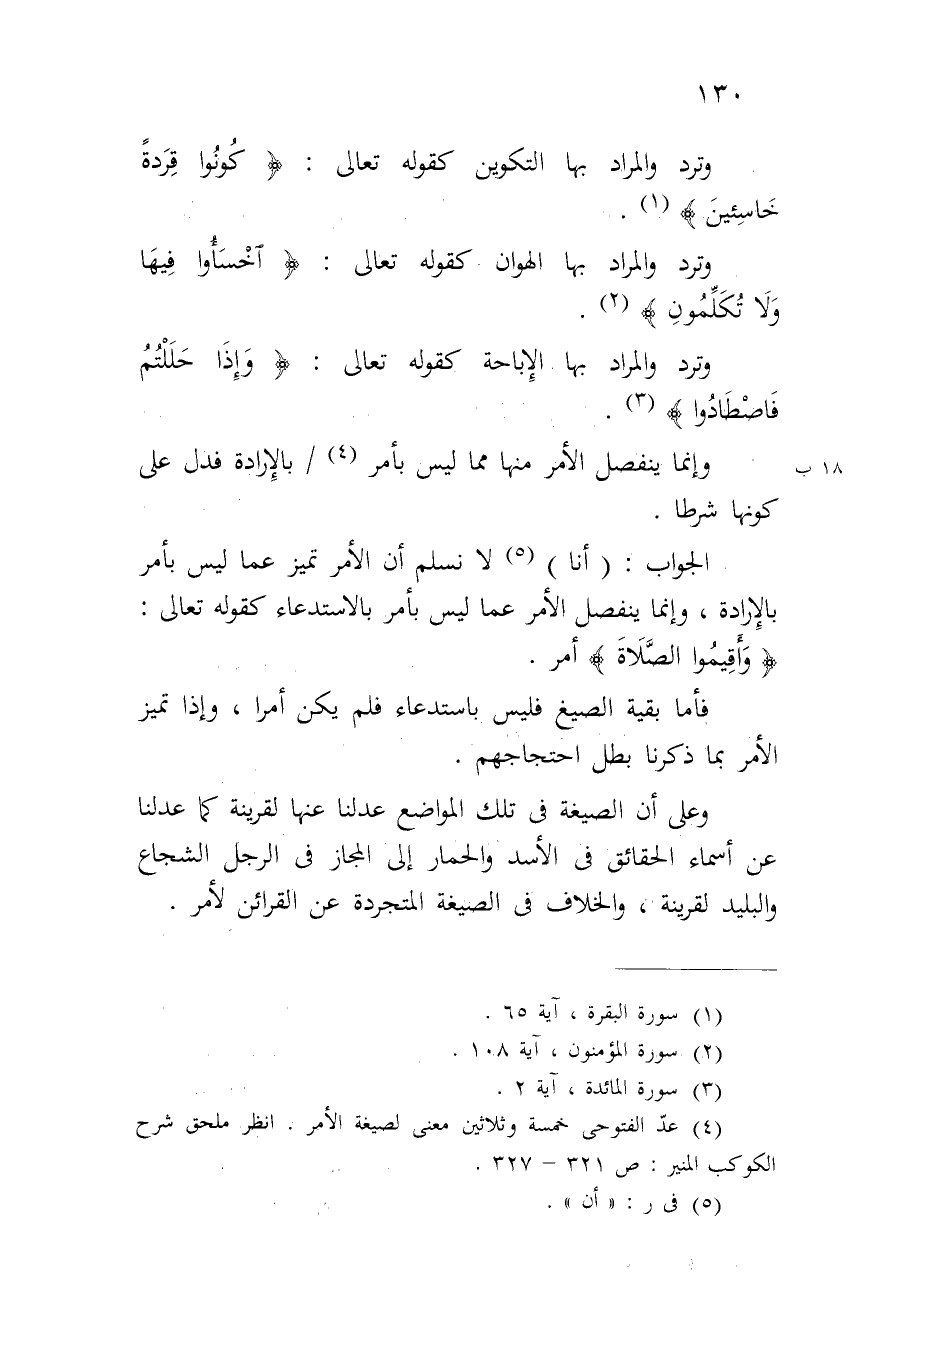 ١٣٠
وترد والمراد بها التكوين كقوله تعالى : ﴿ كُونُوا قِرَدةً
خَاسِئِينَ ﴾ (١) .
وترد والمراد بها الهوان كقوله تعالى : ﴿ ٱخْسَأُوا فِيهَا
وَلَا تُكَلِّمُونِ ﴾ (٢) .
وترد والمراد بها الإِباحة كقوله تعالى : ﴿ وَإِذَا حَلَلْتُمُ
فَاصْطَادُوا ﴾ (٣) .
وإنما ينفصل الأمر منها مما ليس بأمر (٤) / بالإِرادة فدل على ١٨ ب
كونها شرطا .
الجواب : ( أنا ) (٥) لا نسلم أن الأمر تميز عما ليس بأمر
بالإِرادة ، وإنما ينفصل الأمر عما ليس بأمر بالاستدعاء كقوله تعالى :
﴿ وَأَقِيمُوا الصَّلَاةَ ﴾ أمر .
فأما بقية الصيغ فليس باستدعاء فلم يكن أمرا ، وإذا تميز
الأمر بما ذكرنا بطل احتجاجهم .
وعلى أن الصيغة فى تلك المواضع عدلنا عنها لقرينة كما عدلنا
عن أسماء الحقائق فى الأسد والحمار إلى المجاز فى الرجل الشجاع
والبليد لقرينة ، والخلاف فى الصيغة المتجردة عن القرائن لأمر .
(١) سورة البقرة ، آية ٦٥ .
(٢) سورة المؤمنون ، آية ١٠٨ .
(٣) سورة المائدة ، آية ٢ .
(٤) عدّ الفتوحى خمسة وثلاثين معنى لصيغة الأمر . انظر ملحق شرح
الكوكب المنير : ص ٣٢١ – ٣٢٧ .
(٥) فى ر : « أن » .